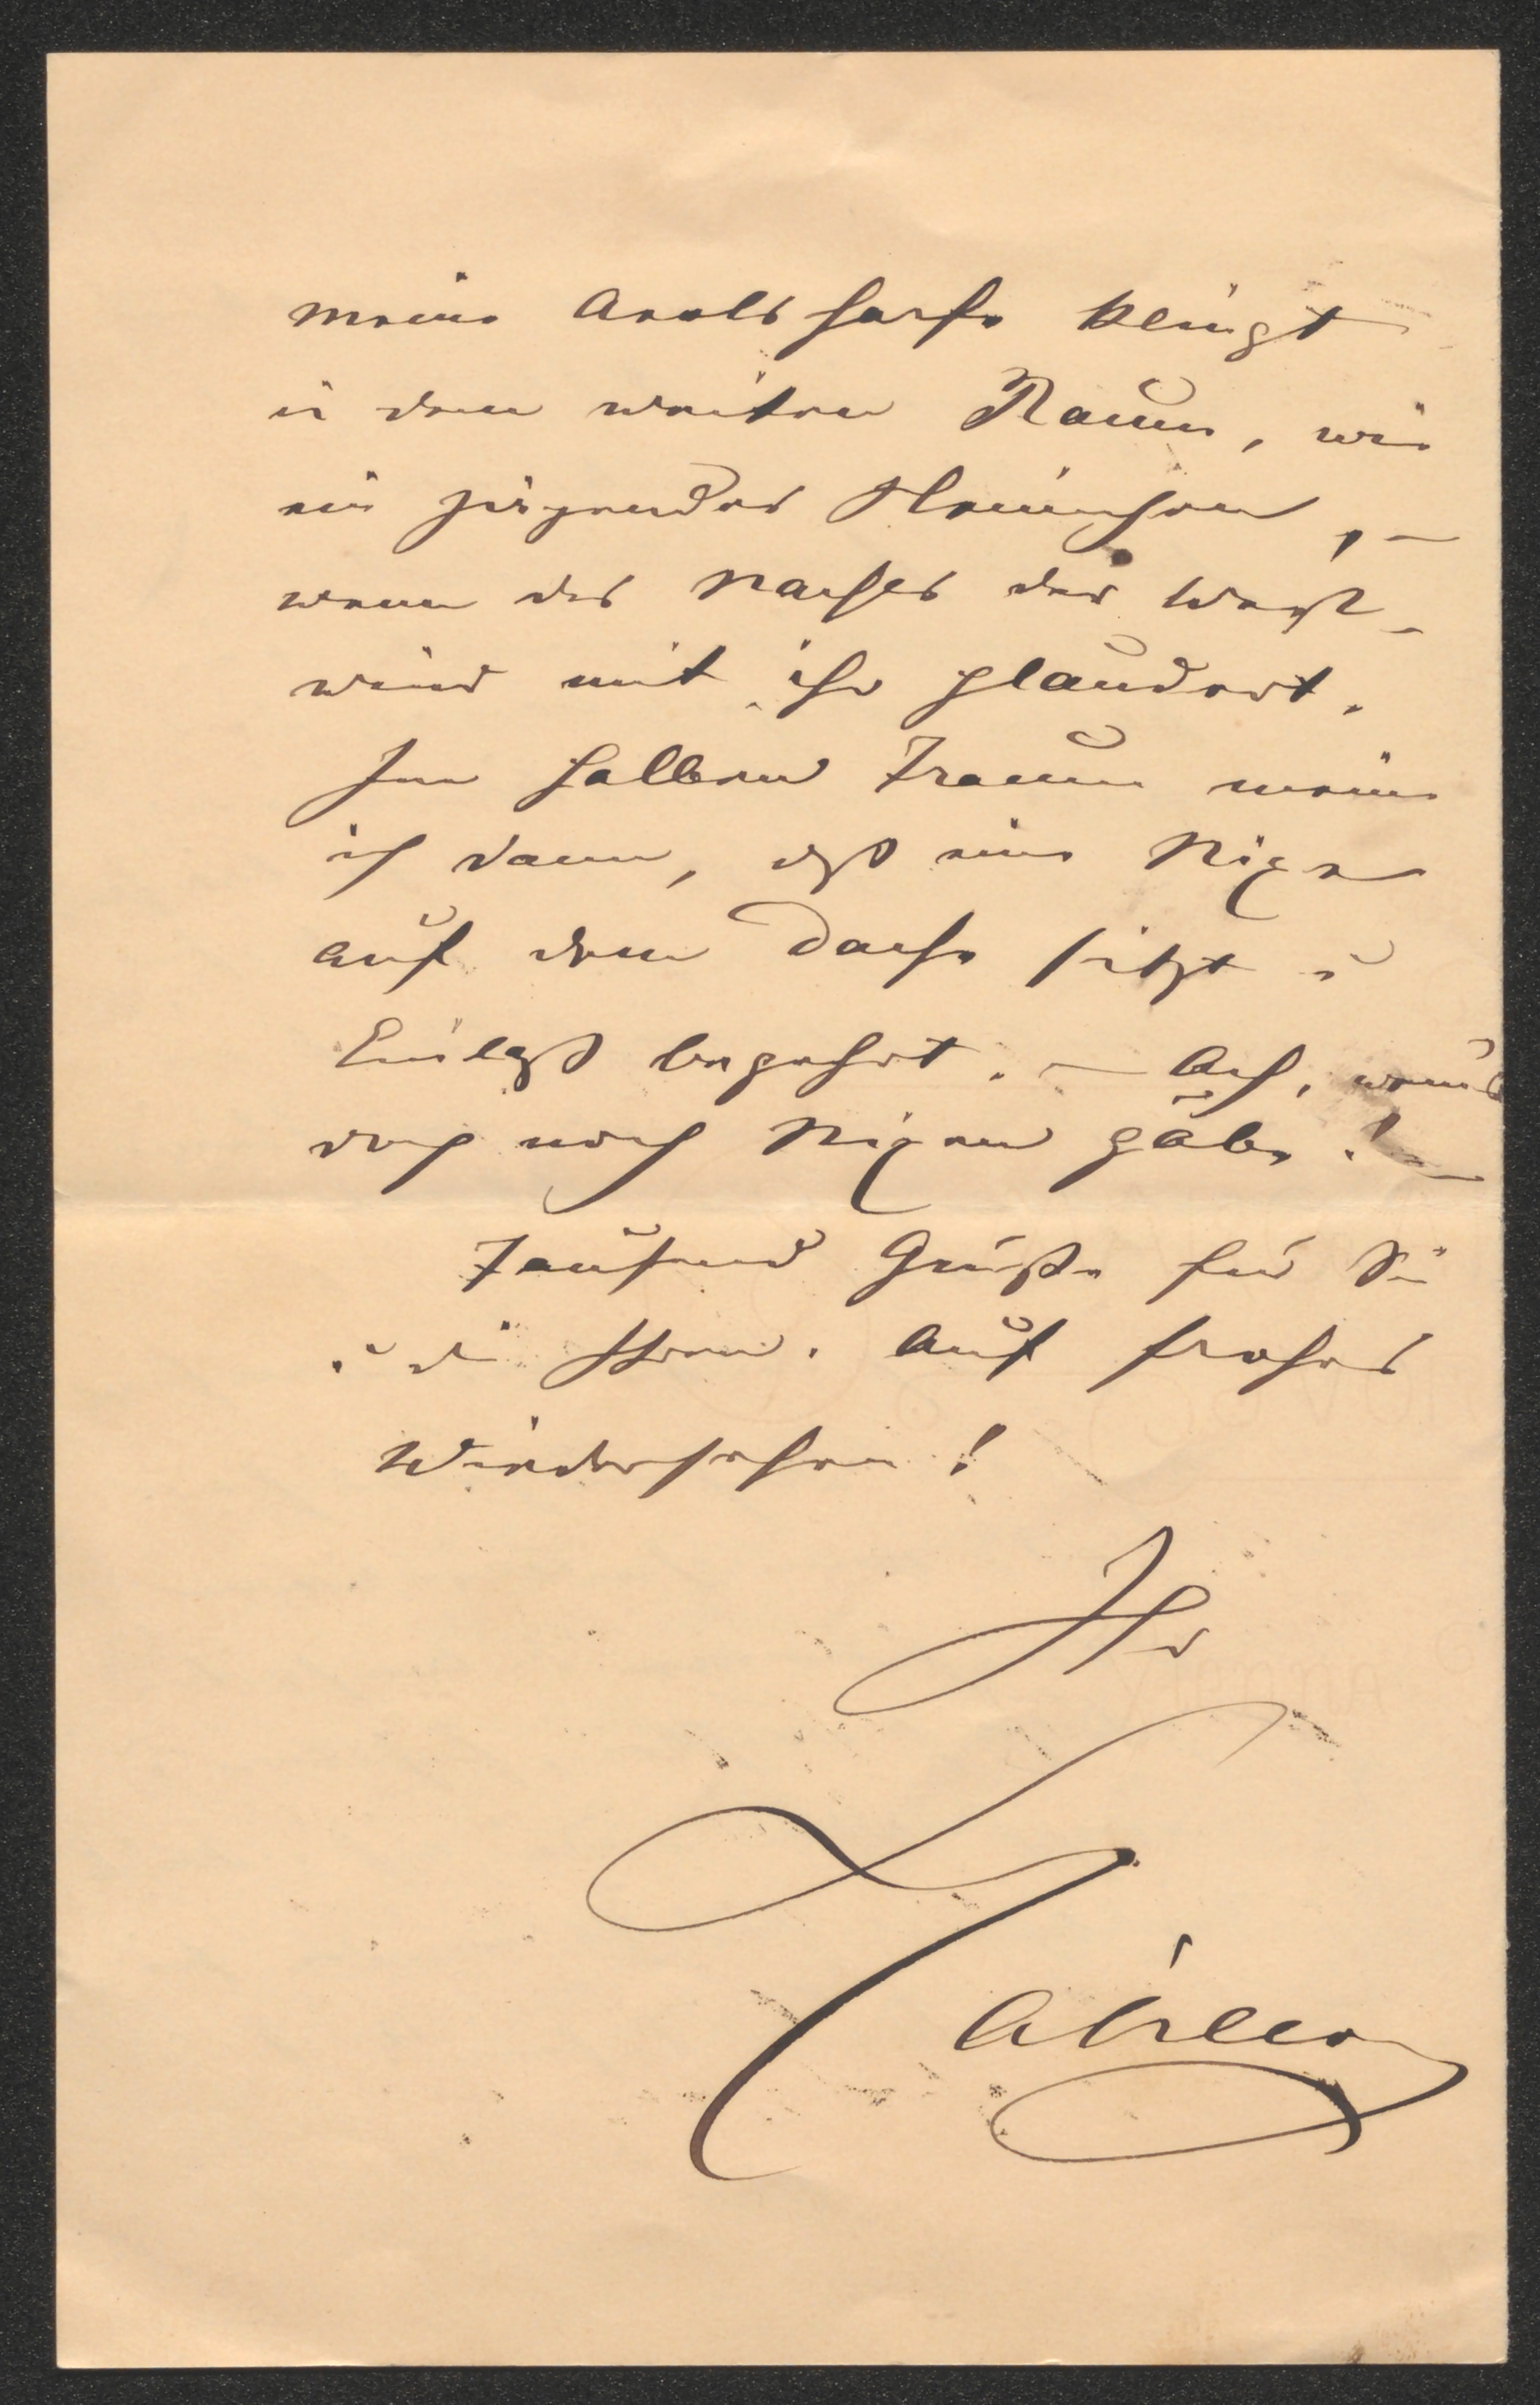 Meine Aeolsharfe klingt
in dem weiten Raum, wie
ein singendes Stimmchen, –
wenn des Nachts der West-
wind mit ihr plaudert.
Im halben Traum meine
ich dann, dß eine Nixe
auf dem Dache sitzt u
Einlaß begehrt. – Ach, wenns
doch noch Nixen gäbe! –
Tausend Grüße für Sie
u die Ihren. Auf frohes
Wiedersehen!
Ihr